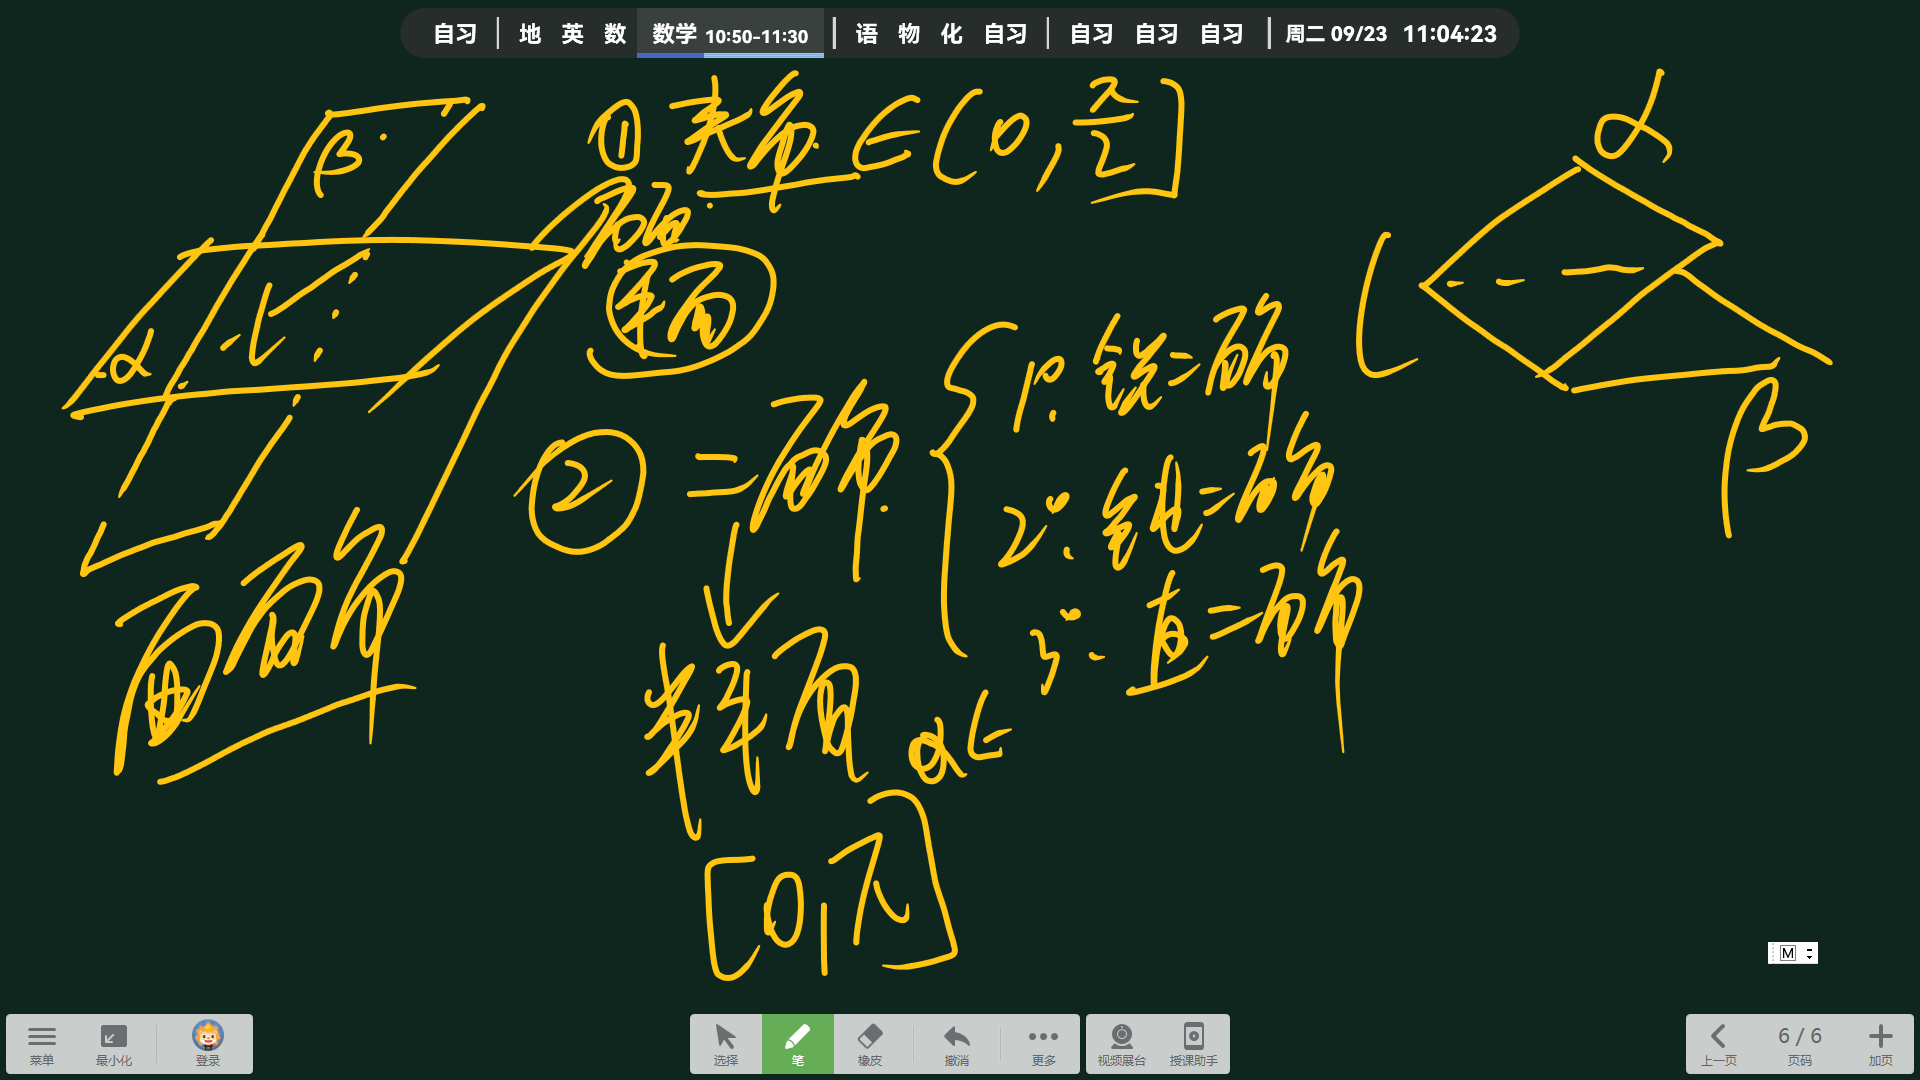 自习 | 地 英 数 数学 10:50-11:30 | 语 物 化 自习 | 自习 自习 自习 | 周二 09/23 11:04:23
① 夹角 ∈ (0, π/2]
面面
平面
β
α
l
面面角
② 二面角
1°. 锐二面角
2°. 钝二面角
3°. 直二面角
半平面
α∈
[0, π]
α
β
M
菜单 最小化 登录
选择 笔 橡皮 撤消 更多
视频展台 授课助手
上一页 6 / 6 页码 加页